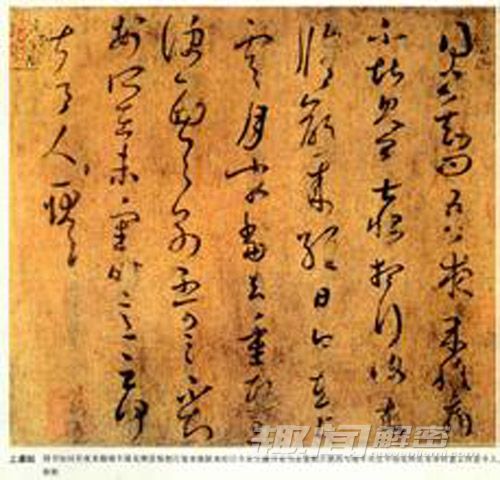 得書知問吾夜來腹痛
不堪見卿甚恨想行復來
脩齡來經日今在上
虞月末當去重熙旦
便西與別不可言不知
安所在未審時意云何
甚令人耿耿
上虞帖
趣闻解密